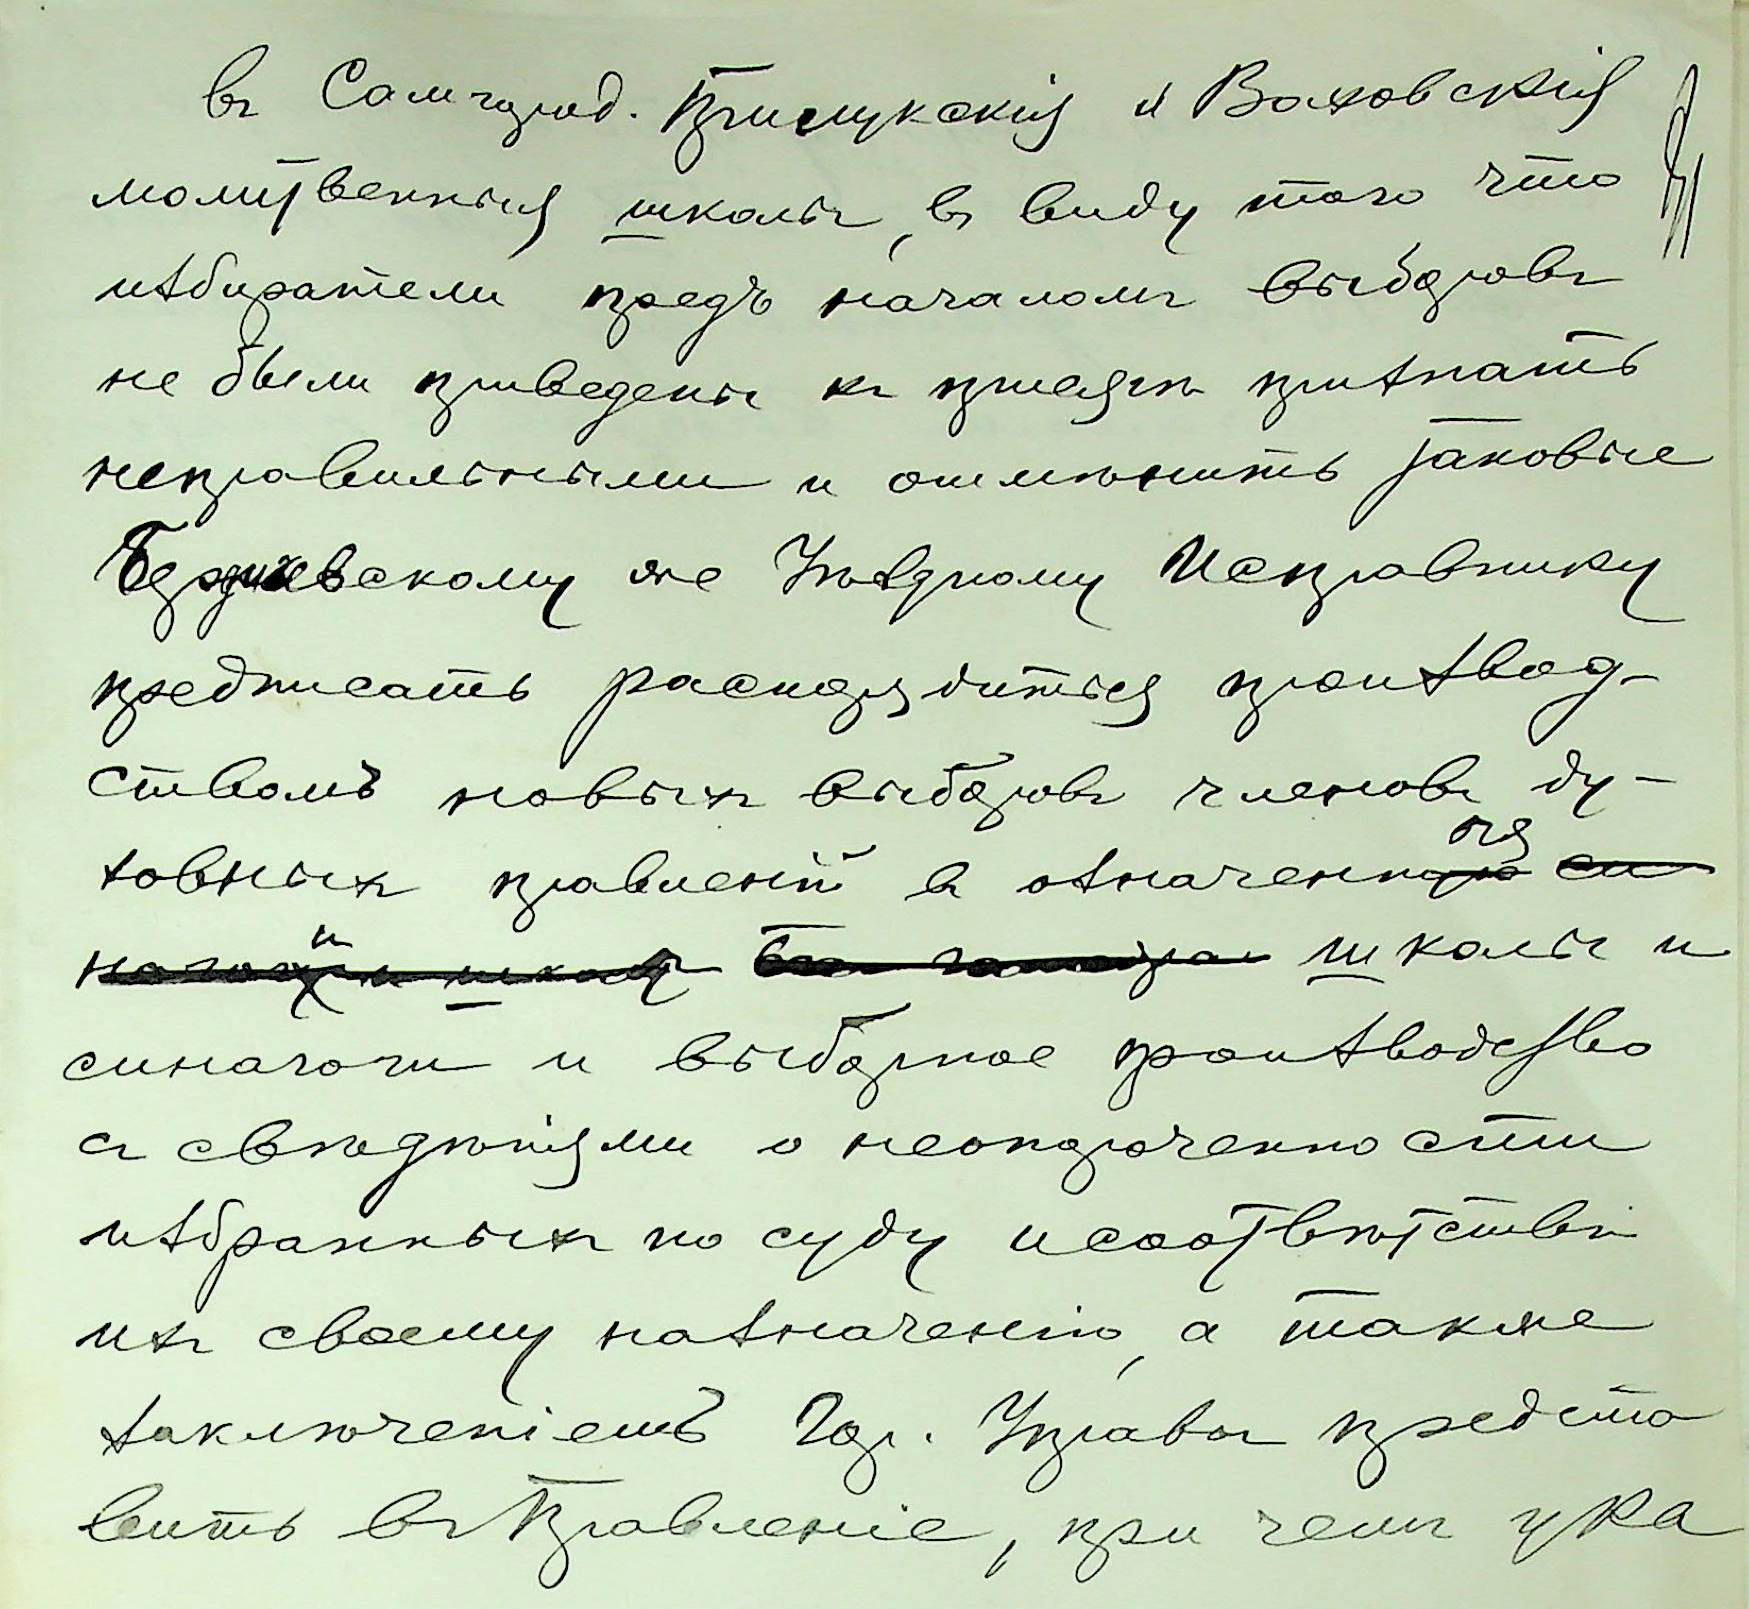 въ Самгород. Прилукскія и Ваховскія
молитвенныя школы, въ виду того что
избиратели предъ началомъ выборовъ
не были приведены къ присягѣ признать
неправильными и отмѣнить таковые
Бердичевскому же Уѣздному Исправнику
предписать распорядиться производ-
ствомъ новыхъ выборовъ членовъ ду-
ховныхъ правленій въ означенныя
школы и
синагоги и выборное производство
съ свѣдѣніями о неопороченности
избранныхъ по суду и соотвѣтствіи
ихъ своему назначенію, а также
заключеніемъ Гор. Управы предста
вить въ Правленіе, при чемъ ука